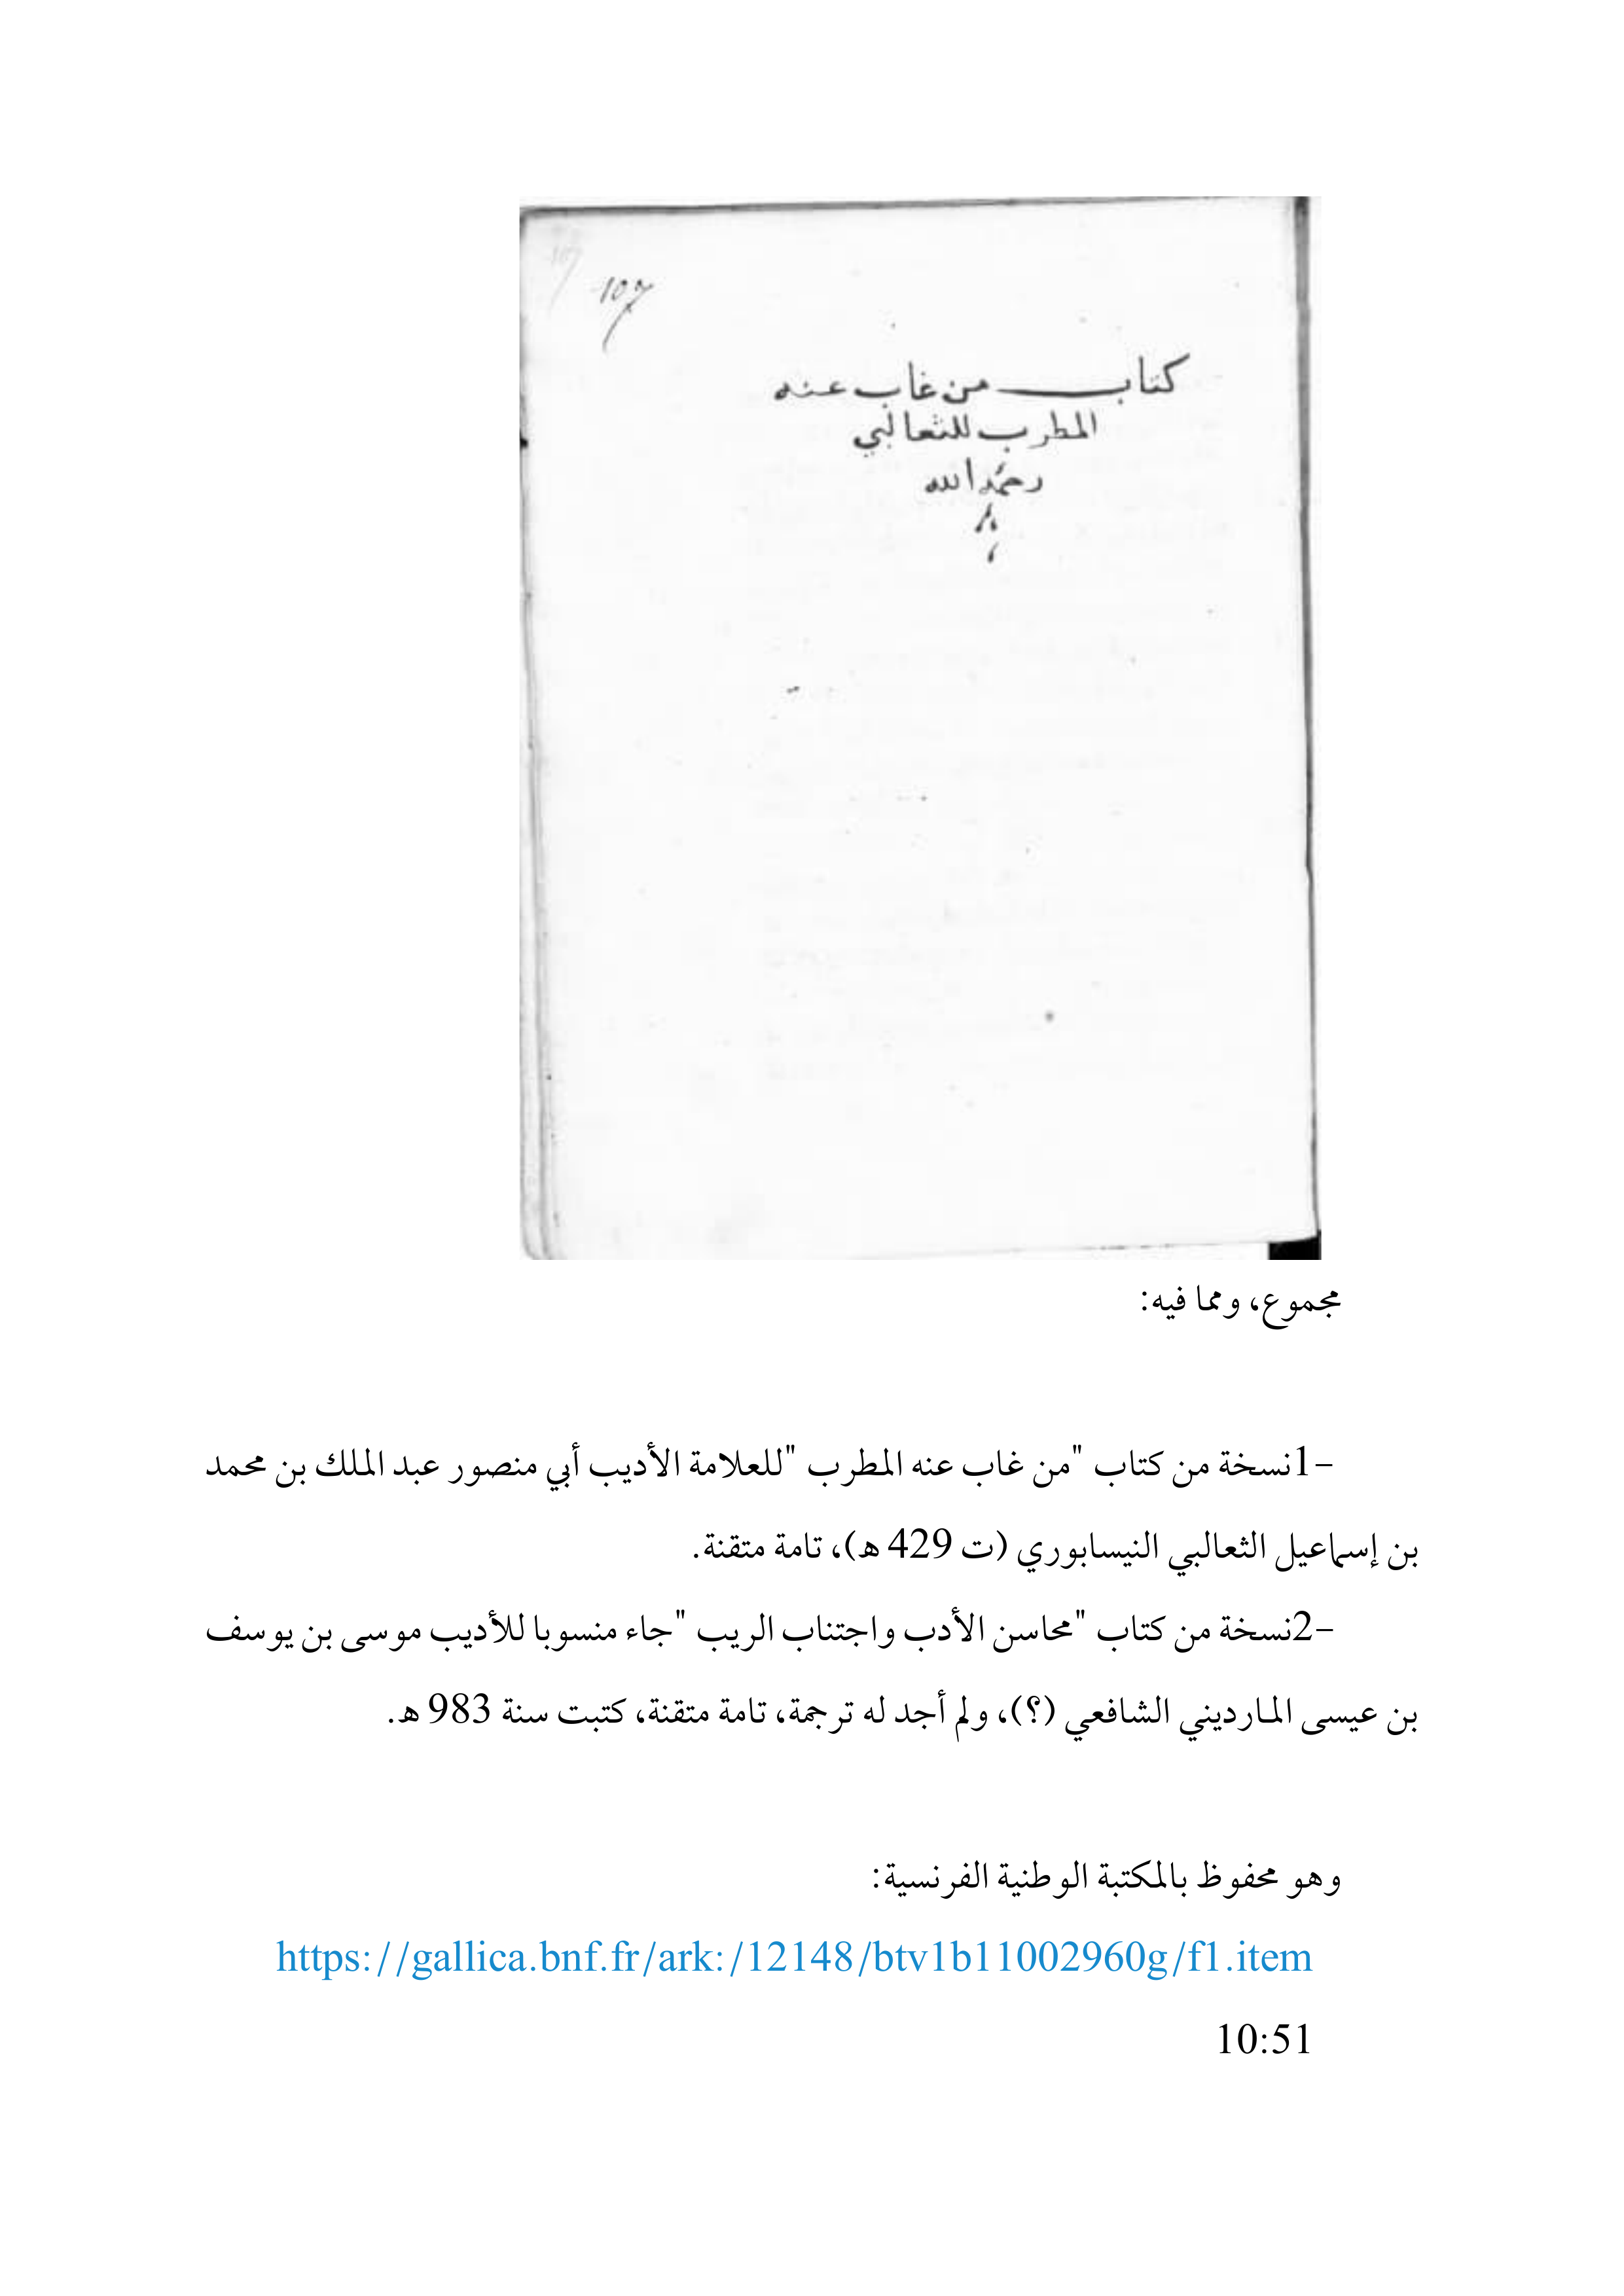 107
كتاب من غاب عنه
المطرب للثعالبي
رحمه الله
مجموع، ومما فيه:
-1نسخة من كتاب "من غاب عنه المطرب "للعلامة الأديب أبي منصور عبد الملك بن محمد
بن إسماعيل الثعالبي النيسابوري (ت 429 هـ)، تامة متقنة.
-2نسخة من كتاب "محاسن الأدب واجتناب الريب "جاء منسوبا للأديب موسى بن يوسف
بن عيسى المارديني الشافعي (؟)، ولم أجد له ترجمة، تامة متقنة، كتبت سنة 983 هـ.
وهو محفوظ بالمكتبة الوطنية الفرنسية:
https://gallica.bnf.fr/ark:/12148/btv1b11002960g/f1.item
10:51